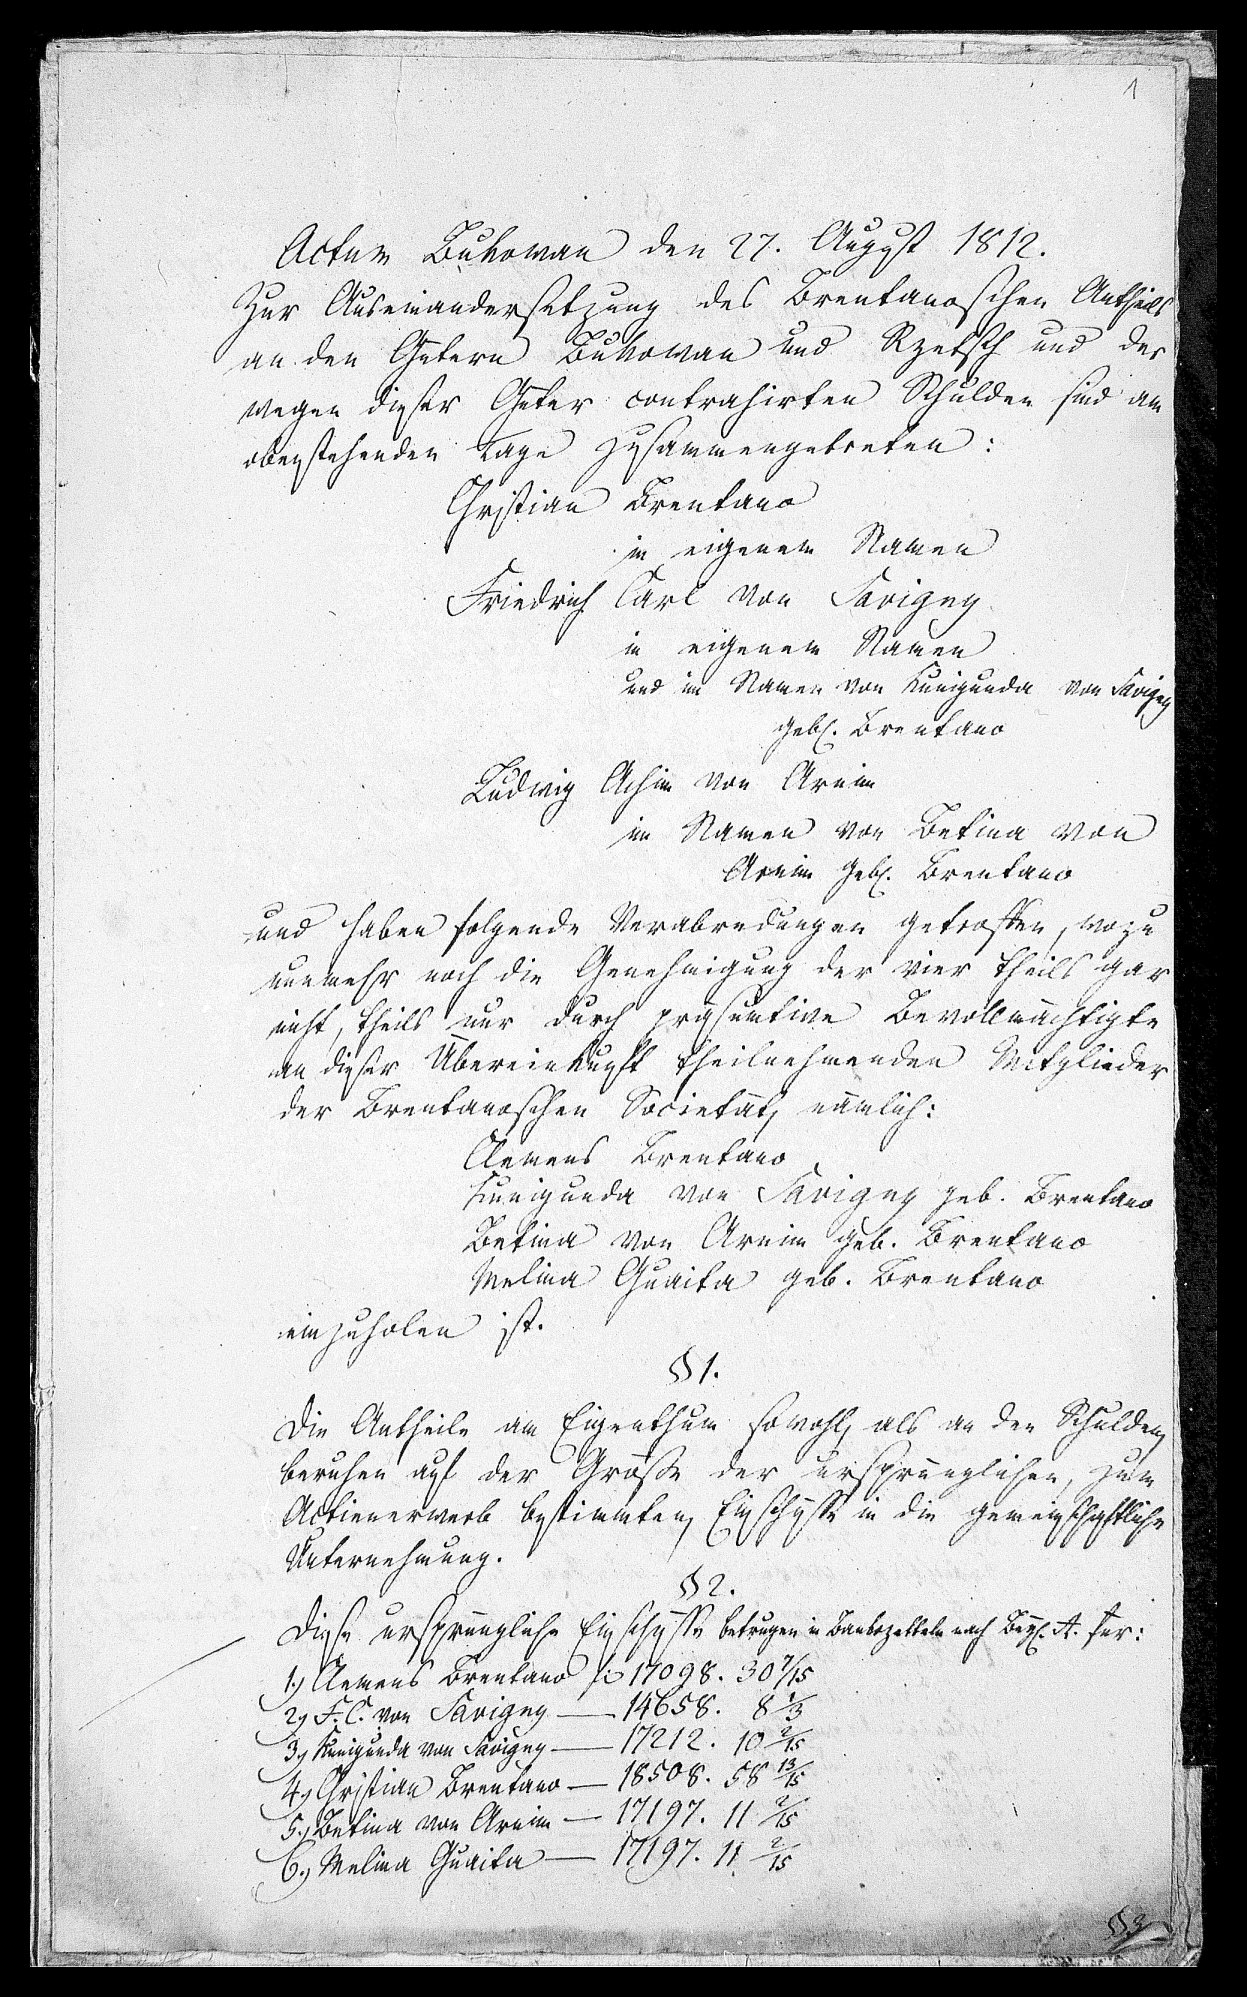 1
Actum Bukowan den 27. August 1812.
Zur Auseinandersetzung des Brentanoschen Antheils
an den Gütern Bukowan und Rzetsch und der
wegen dieser Güter contrahirten Schulden sind am
obenstehenden Tage zusammengetreten:
Christian Brentano
in eigenem Namen
Friedrich Carl von Savigny
in eigenem Namen
und im Namen von Kunigunda von Savigny
geb. Brentano
Ludwig Achim von Arnim
im Namen von Betina von
Arnim geb. Brentano
und haben folgende Verabredungen getroffen, wozu
nunmehr noch die Genehmigung der vier theils gar
nicht, theils nur durch präsumtive Bevollmächtigte
an dieser Übereinkunft theilnehmenden Mitglieder
der Brentanoschen Societät, nämlich:
Clemens Brentano
Kunigunda von Savigny geb. Brentano
Betina von Arnim geb. Brentano
Melina Guaita geb. Brentano
einzuholen ist.
§ 1.
Die Antheile am Eigenthum sowohl, als an den Schulden,
beruhen auf der Größe der ursprünglichen, zum
Actienerwerb bestimmten, Einschüsse in die gemeinschaftliche
Unternehmung.
§ 2.
Diese ursprüngliche Einschüsse betrugen in Bankozetteln nach Beyl. A. für:
1.) Clemens Brentano f. 17098. 30 7/15
2.) F. C. von Savigny — 14658. 8 1/3
3.) Kunigunda von Savigny — 17212. 10 2/15
4.) Christian Brentano — 18508. 58 13/15
5.) Betina von Arnim — 17197. 11 2/15
6.) Melina Guaita — 17197. 11 2/15
§ 3